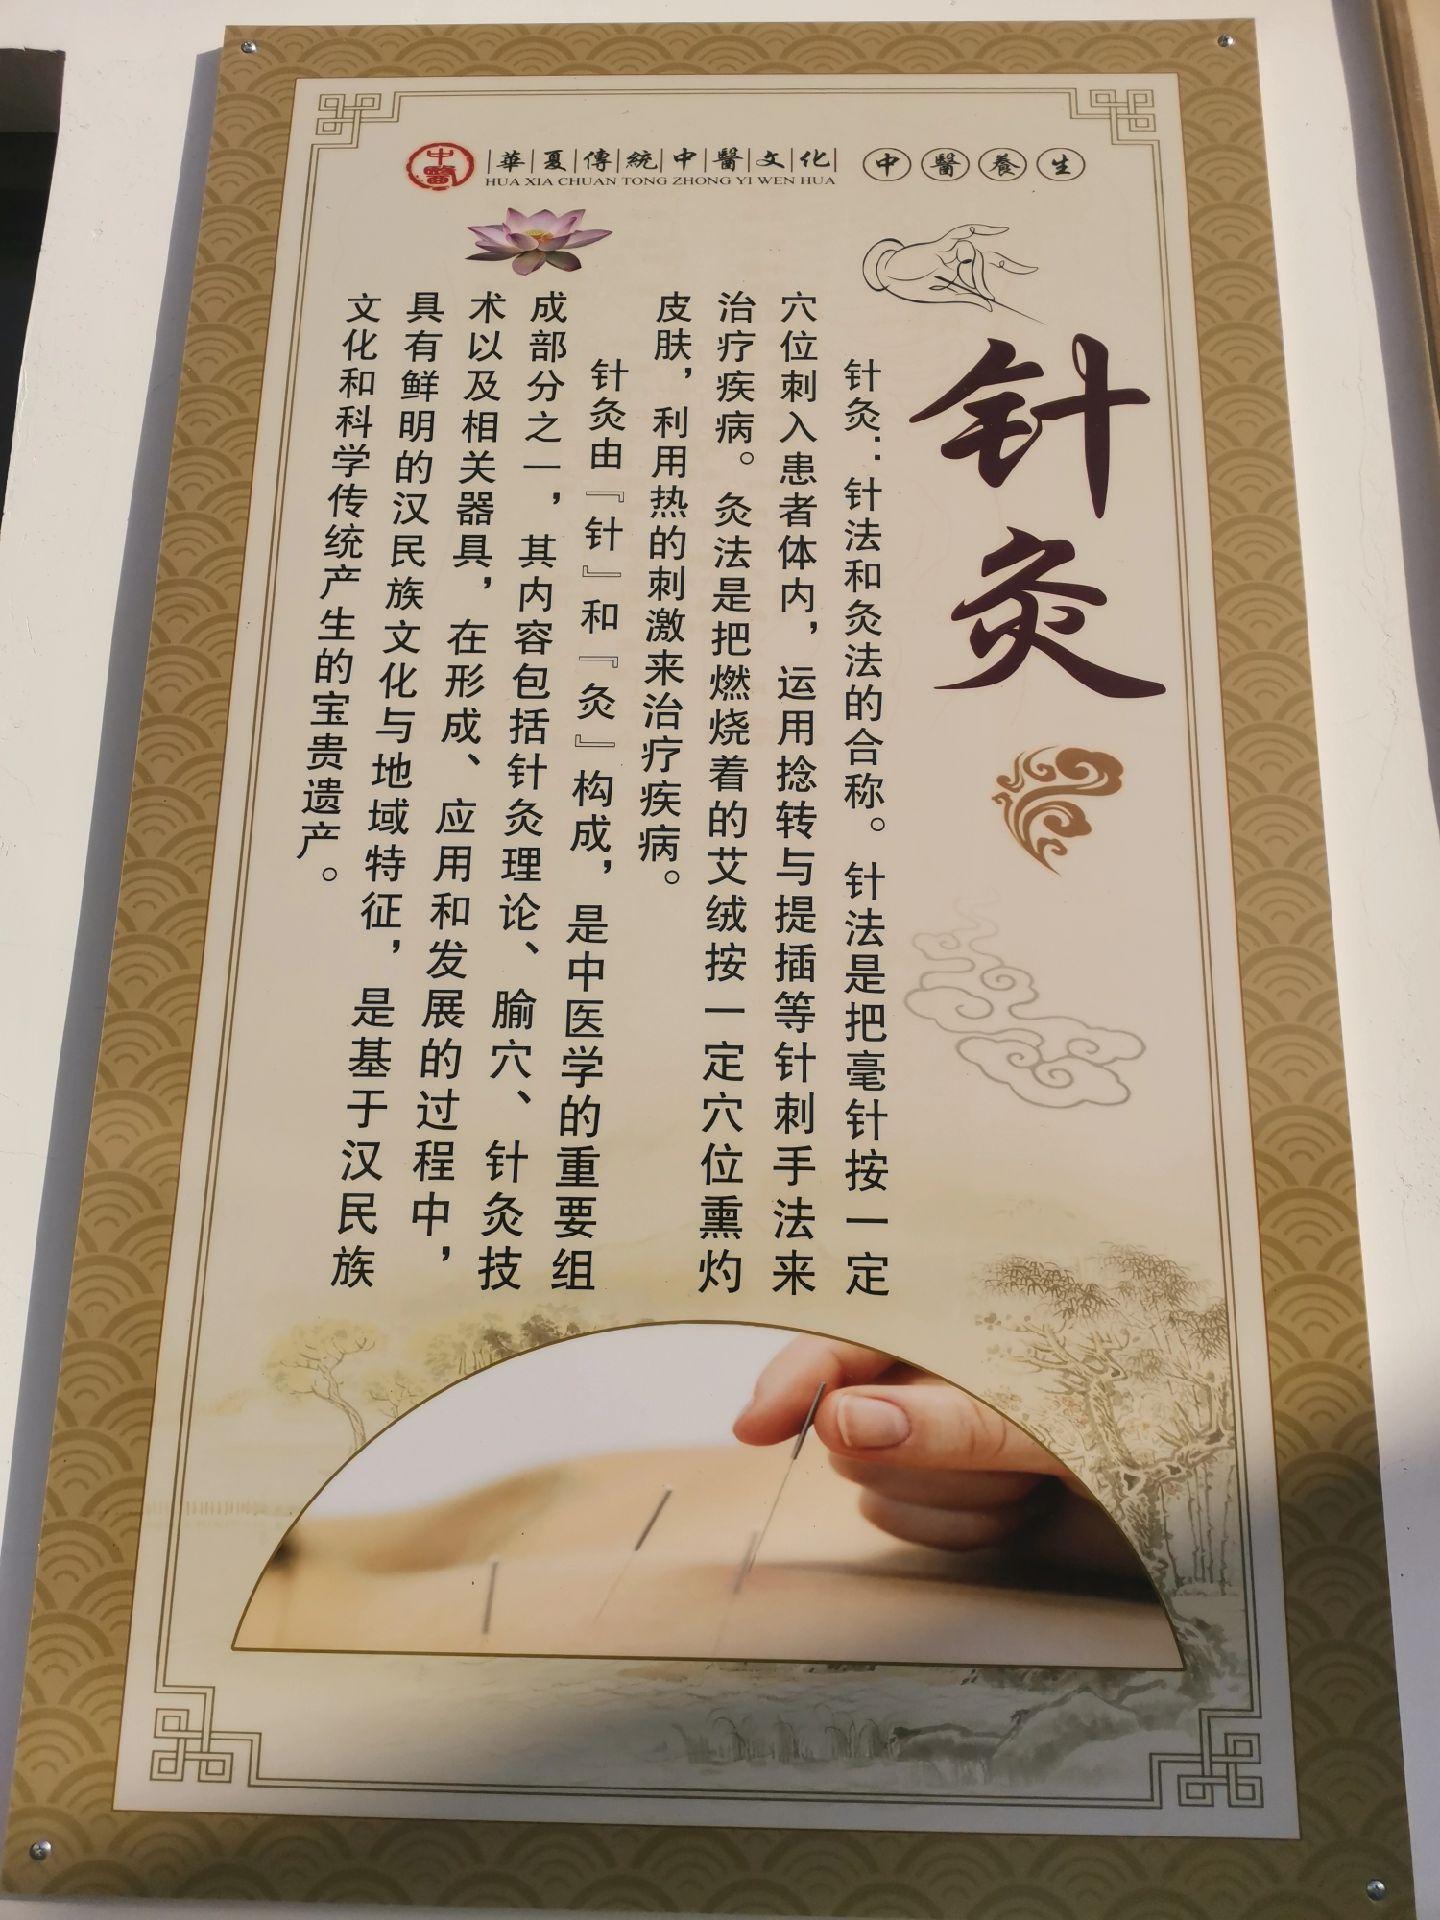 中醫
華夏傳統中醫文化
HUA XIA CHUAN TONG ZHONG YI WEN HUA
中醫養生
针灸
针灸：针法和灸法的合称。针法是把毫针按一定
穴位刺入患者体内，运用捻转与提插等针刺手法来
治疗疾病。灸法是把燃烧着的艾绒按一定穴位熏灼
皮肤，利用热的刺激来治疗疾病。
针灸由『针』和『灸』构成，是中医学的重要组
成部分之一，其内容包括针灸理论、腧穴、针灸技
术以及相关器具，在形成、应用和发展的过程中，
具有鲜明的汉民族文化与地域特征，是基于汉民族
文化和科学传统产生的宝贵遗产。